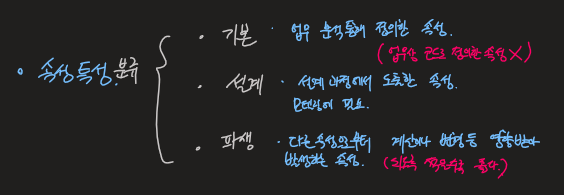 • 속성 특성 분류
• 기본 · 업무 분석 통해 정의한 속성.
(업무상 코드로 정의한 속성 X)
• 설계 · 설계 과정에서 도출한 속성.
모델링에 필요.
• 파생 · 다른 속성으로부터 계산이나 변형 등 영향받아
발생하는 속성. (되도록 적은수록 좋다.)